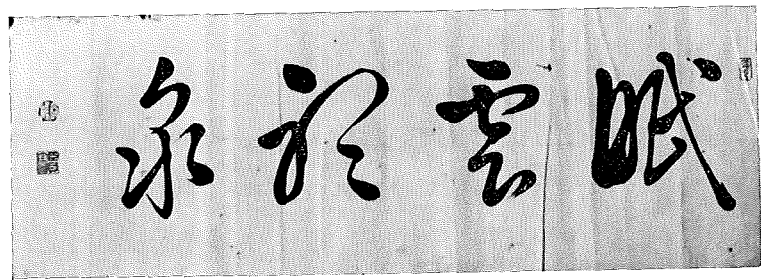 眠雲聽泉